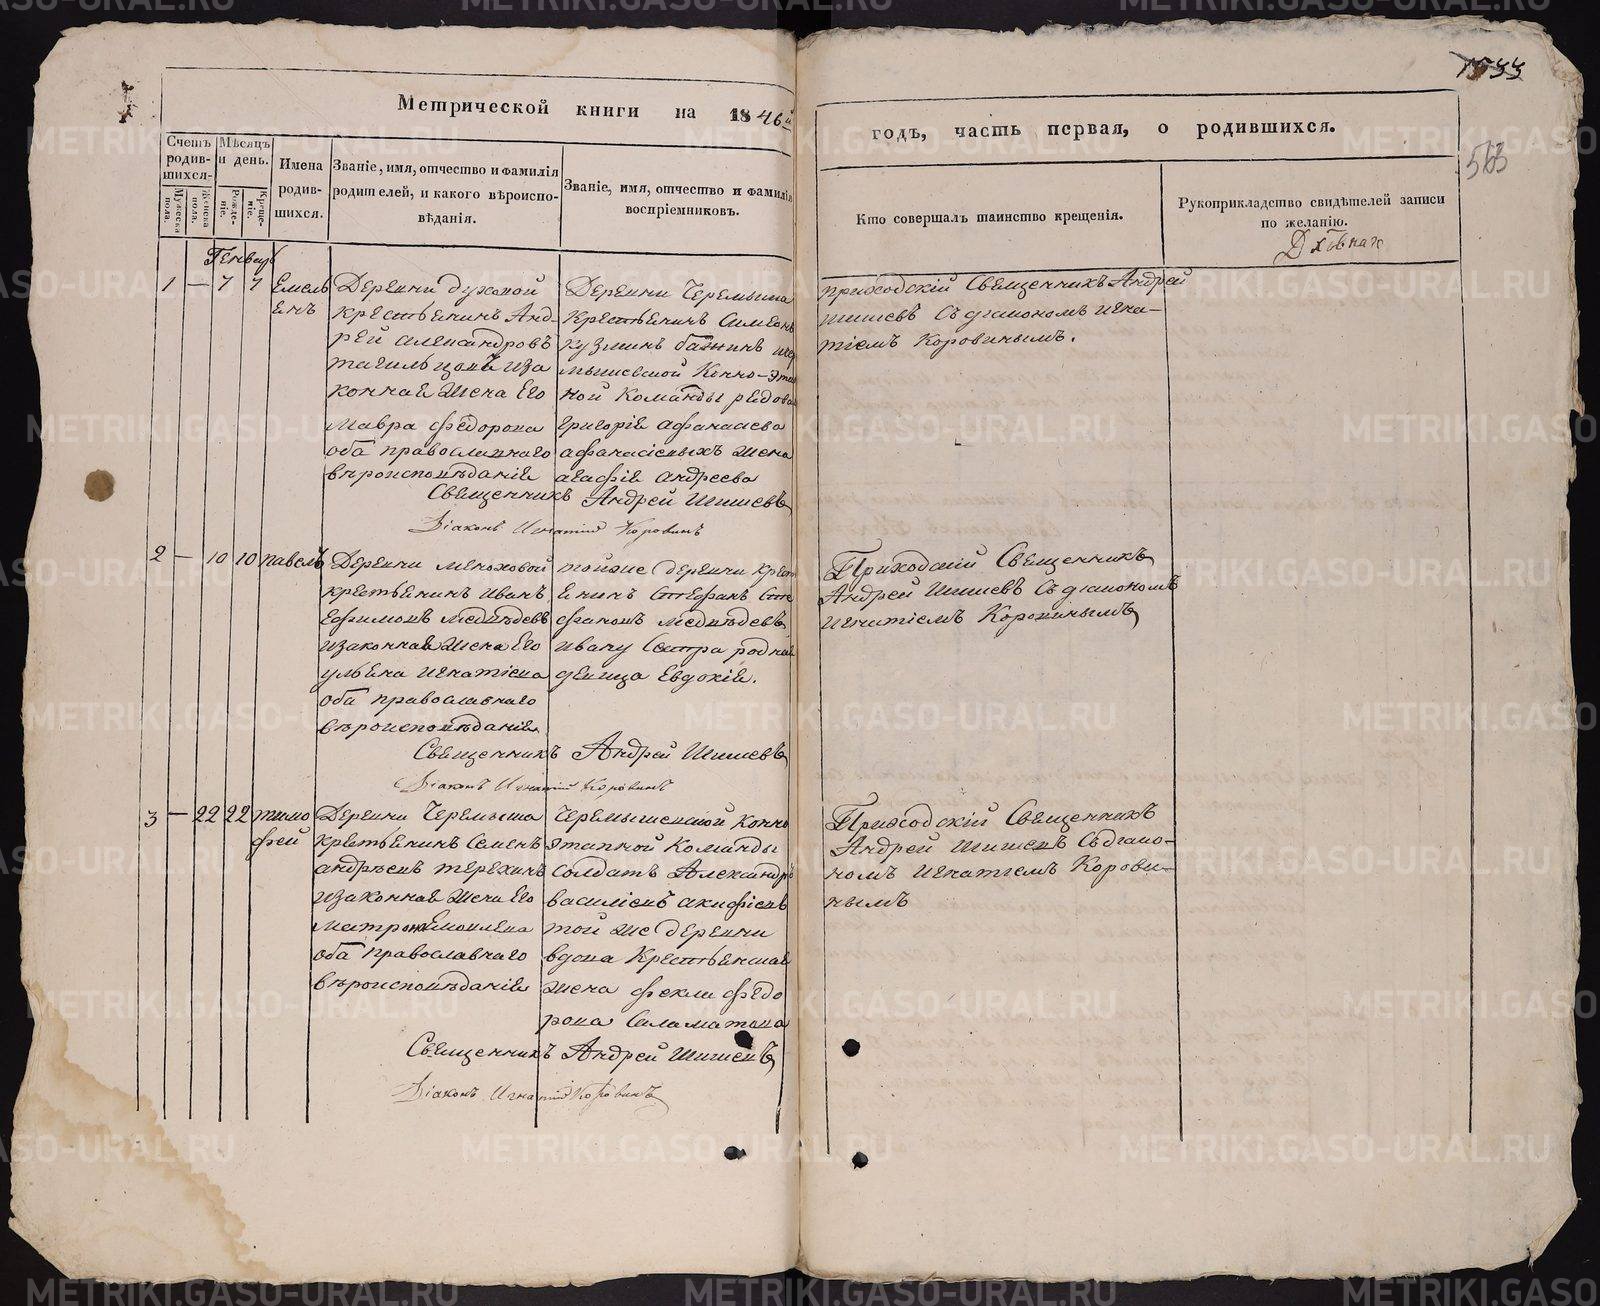 Метрической книги на 1846й
годъ, часть первая, о родившихся.
1533
563
Счетъ родив-шихся.
Мужеска пола.
Женска пола.
Мѣсяцъ и день.
Рожде-ніе.
Креще-ніе.
Имена родив-шихся.
Званіе, имя, отчество и фамилія родителей, и какого вѣроиспо-вѣданія.
Званіе, имя, отчество и фамилія воспріемниковъ.
Кто совершалъ таинство крещенія.
Рукоприкладство свидѣтелей записи по желанію.
Генварь
1 — 7 7 Емель
енъ
Деревни духовой
крестьянинъ Анд-
рей александровъ
тагильцовъ иза
конная жена Его
мавра федорова
оба православнаго
вѣроисповѣданія
Деревни Черемыша
Крестьянинъ Симеонъ
кузминъ
мышевской Конно-этап
ной команды рядова
григорія афанасьева
афанасьевыхъ жена
агафія андреева
приходскій Священникъ Андрей
шишевъ съ діакономъ игна-
тіемъ Коровинымъ.
Священникъ Андрей Шишевъ
Діаконъ Игнатій Коровинъ
2 — 10 10 павелъ
Деревни меноховой
крестьянинъ иванъ
Ефимовъ медвѣдевъ
изаконная жена Его
ульяна игнатіева
оба православнаго
вѣроисповѣданія
тойже деревни крест
янинъ Стефанъ Сте
фановъ медвѣдевъ
ивану Сестра родная
девица Евдокія.
Приходскій Священникъ
Андрей Шишевъ съ діакономъ
игнатіемъ Коровинымъ
Священникъ Андрей Шишевъ
Діаконъ Игнатій Коровинъ
3 — 22 22 тимо
фей
Деревни Черемыша
крестьянинъ Семенъ
андреевъ терехинъ
изаконная жена Его
матрона
оба православнаго
вѣроисповѣданія
Черемышевской конно
этапной команды
солдатъ Александръ
василіевъ акифіевъ
той же деревни
вдова Крестьянская
жена фекла федо
рова Саламатова
Приходскій Священникъ
Андрей шишевъ съ діако-
номъ игнатіемъ Корови-
нымъ
Священникъ Андрей Шишевъ
Діаконъ Игнатій Коровинъ
METRIKI.GASO-URAL.RU